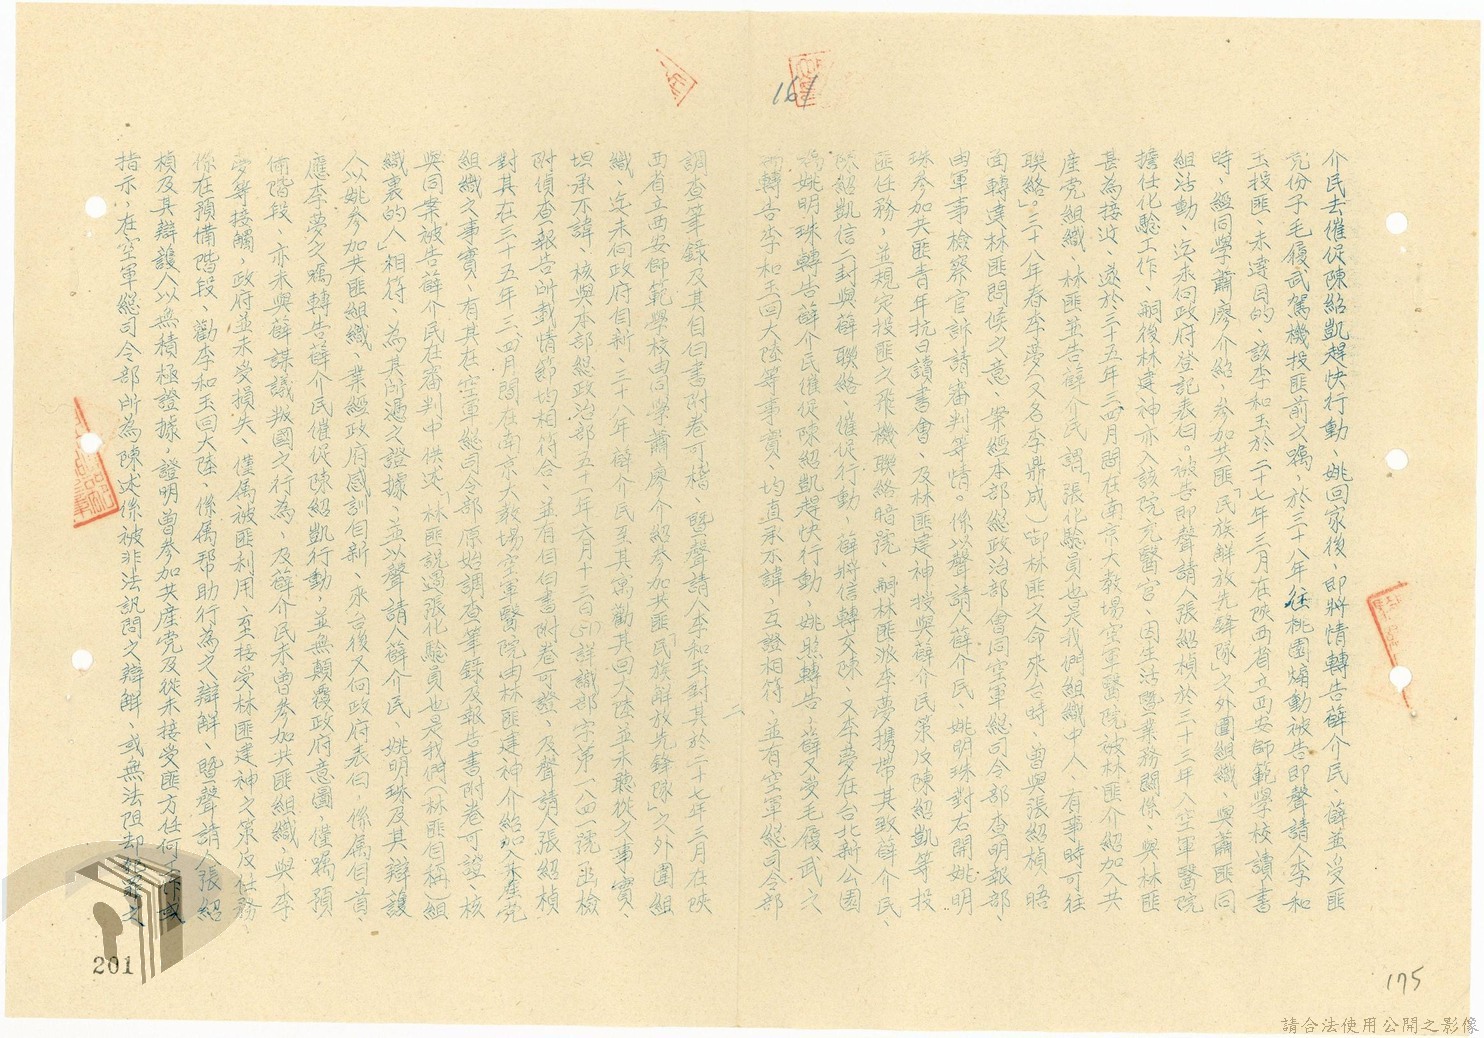 161
介民去催促陳紹凱趕快行動、姚回家後、即將情轉告薛介民、薛並受匪
党份子毛履武駕機投匪前之囑、於三十八年往桃園煽動被告即聲請人李和
玉投匪、未達目的、該李和玉於二十七年三月在陝西省立西安師範學校讀書
時、經同學蕭廖介紹、參加共匪「民族解放先鋒隊」之外圍組織、與蕭匪同
組活動、迄未向政府登記表白。被告即聲請人張紹楨於三十三年入空軍醫院
擔任化驗工作、嗣後林建神亦入該院充醫官、因生活暨業務關係、與林匪
甚為接近、遂於三十五年三四月間在南京大教場空軍醫院被林匪介紹加入共
產党組織、林匪並告薛介民謂「張化驗員也是我們組織中人、有事時可往
聯絡」。三十八年春李夢（又名李鼎成）卸林匪之命來台時、曾與張紹楨晤
面轉達林匪問候之意、案經本部總政治部會同空軍總司令部查明報部、
由軍事檢察官訴請審判等情。係以聲請人薛介民、姚明珠對右開姚明
珠參加共匪青年抗日讀書會、及林匪建神授與薛介民策反陳紹凱等投
匪任務、並規定投匪之飛機聯絡暗號、嗣林匪派李夢携帶其致薛介民、
陳紹凱信二封與薛聯絡、催促行動、薛將信轉交陳、又李夢在台北新公園
囑姚明珠轉告薛介民催促陳紹凱趕快行動、姚照轉告、薛又受毛履武之
囑轉告李和玉回大陸等事實、均直承不諱、互證相符、並有空軍總司令部
二
調查筆錄及其自白書附卷可稽、暨聲請人李和玉對其於二十七年三月在陝
西省立西安師範學校由同學蕭廖介紹參加共匪「民族解放先鋒隊」之外圍組
織、迄未向政府自新、三十八年薛介民至其寓勸其回大陸、並未聽從之事實、
坦承不諱、核與本部總政治部五十一年六月十三日（51）詳識部字第一八四一號函檢
附偵查報告所載情節均相符合、並有自白書附卷可證、及聲請人張紹楨
對其在三十五年三、四月間在南京大教場空軍醫院由林匪建神介紹加入共產党
組織之事實、有其在空軍總司令部原始調查筆錄及報告書附卷可證、核
與同案被告薛介民在審判中供述「林匪說過張化驗員也是我們（林匪自稱）組
織裏的人」相符、為其所憑之證據、並以聲請人薛介民、姚明珠及其辯護
人以姚參加共匪組織、業經政府感訓自新、來台後又向政府表白、係屬自首、
應李夢之囑轉告薛介民催促陳紹凱行動、並無顛覆政府意圖、僅屬預
備階段、亦未與薛謀議叛國之行為、及薛介民未曾參加共匪組織、與李
夢等接觸、政府並未受損失、僅屬被匪利用、至接受林匪建神之策反任務、
係在預備階段、勸李和玉回大陸、係屬帮助行為之辯解、暨聲請人張紹
楨及其辯護人以無積極證據、證明曾參加共產党及從未接受匪方任何工作或
指示、在空軍總司令部所為陳述係被非法訊問之辯解、或無法阻却
201
175
請合法使用公開之影像